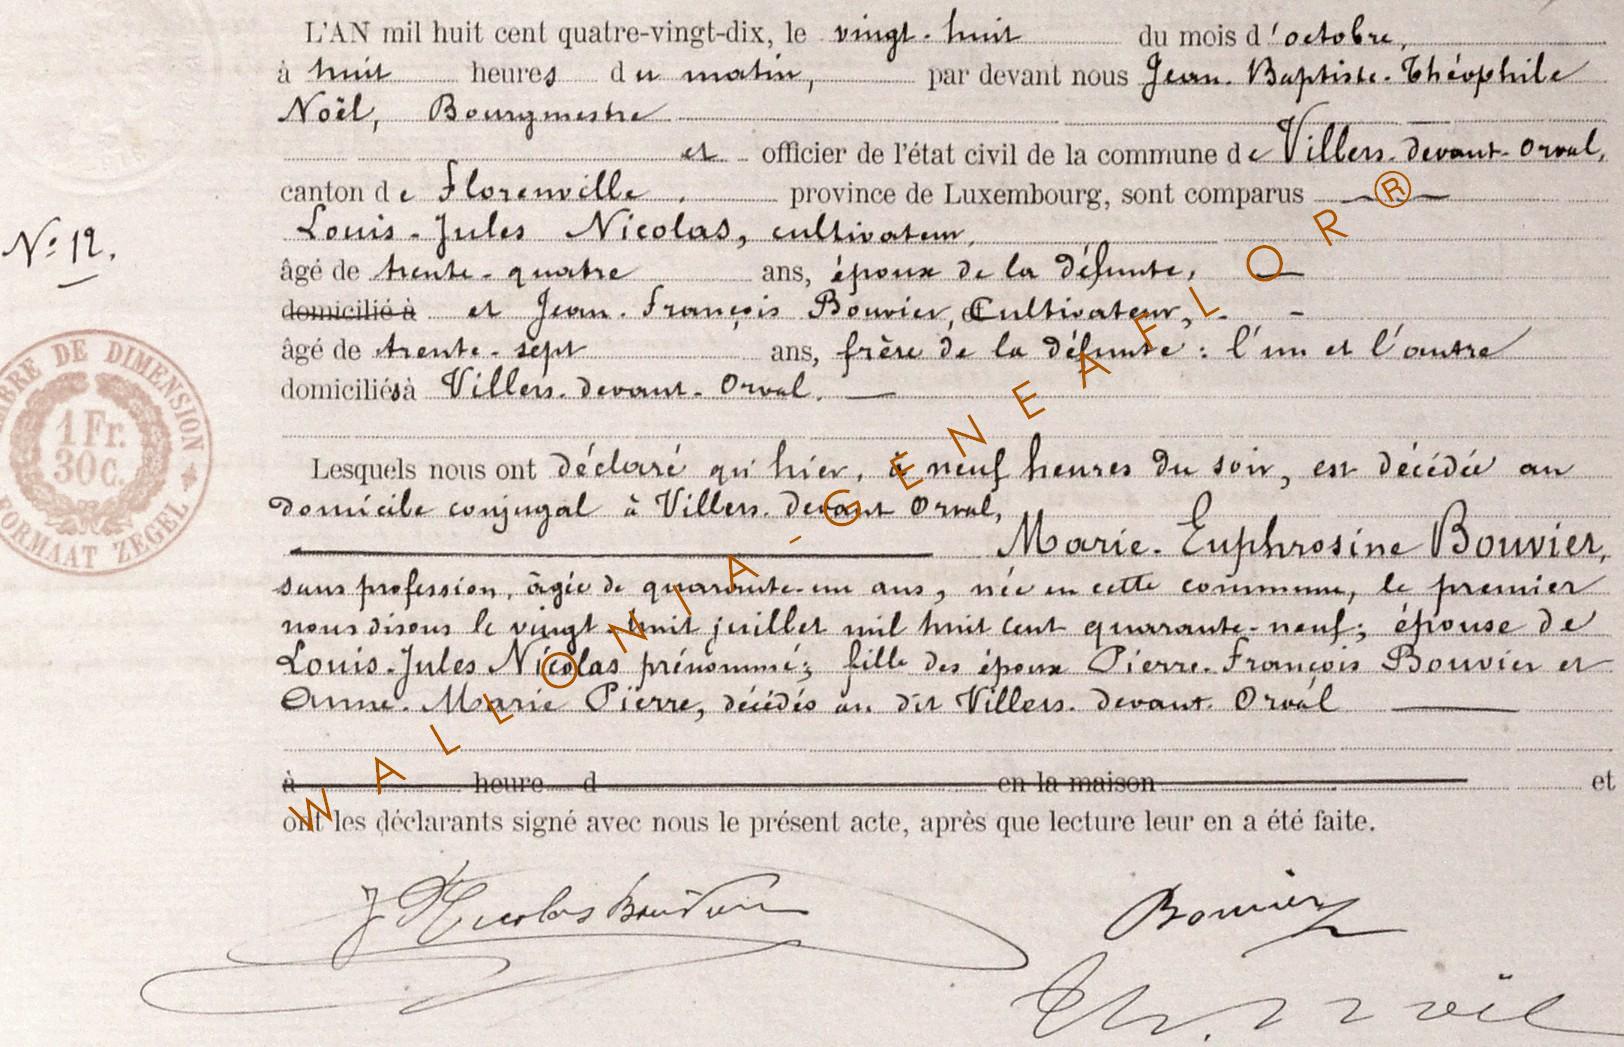 L'AN mil huit cent quatre-vingt-dix, le vingt-huit du mois d'octobre,
à huit heures du matin, par devant nous Jean-Baptiste-Théophile
Noël, Bourgmestre
et officier de l'état civil de la commune de Villers-devant-Orval,
canton de Florenville. province de Luxembourg, sont comparus
Louis-Jules Nicolas, cultivateur,
N° 12.
âgé de trente-quatre ans, époux de la défunte,
domicilié à et Jean-François Bouvier, Cultivateur,
âgé de trente-sept ans, frère de la défunte : l'un et l'autre
domiciliés à Villers-devant-Orval.
TIMBRE DE DIMENSION
1 Fr.
30 c.
FORMAAT ZEGEL
Lesquels nous ont déclaré qu'hier, à neuf heures du soir, est décédée au
domicile conjugal à Villers-devant Orval,
Marie-Euphrosine Bouvier,
sans profession, âgée de quarante-un ans, née en cette commune, le premier
nous disons le vingt-huit juillet mil huit cent quarante-neuf; épouse de
Louis-Jules Nicolas prénommé; fille des époux Pierre-François Bouvier et
Anne-Marie Pierre, décédés au dit Villers-devant-Orval
à heure d en la maison et
ont les déclarants signé avec nous le présent acte, après que lecture leur en a été faite.
J Nicolas Bouvier
Bouvier
Th. Noël
WALLONIA-GENEAFLOR®